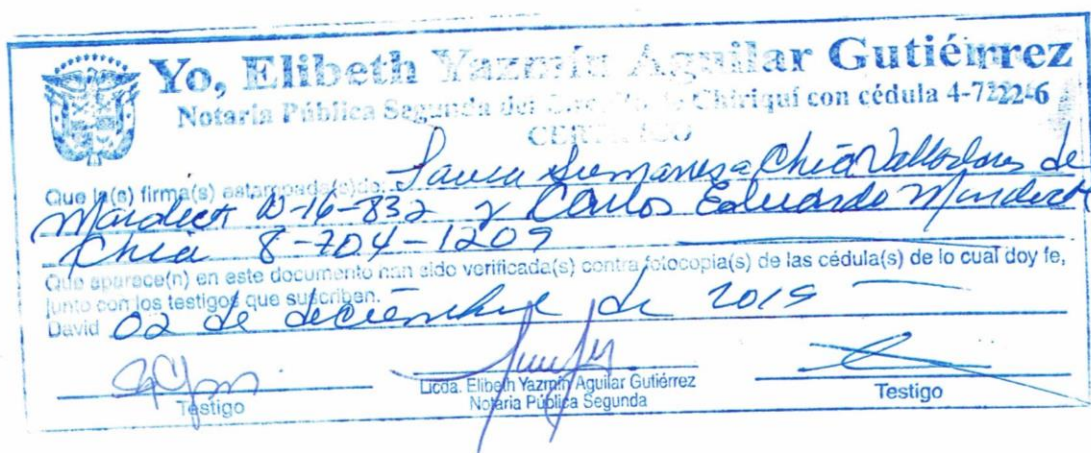 Yo, Elibeth Yazmín Aguilar Gutiérrez
Notaria Pública Segunda del Circuito de Chiriquí con cédula 4-722-6
CERTIFICO
Que la(s) firma(s) estampada(s) de: Chia Valladares de
Mardick N-16-832 y Carlos Eduardo Mardick
Chia 8-704-1209
Que aparece(n) en este documento han sido verificada(s) contra fotocopia(s) de las cédula(s) de lo cual doy fe,
junto con los testigos que suscriben.
David 02 de diciembre de 2019
Testigo
Licda. Elibeth Yazmín Aguilar Gutiérrez
Notaria Pública Segunda
Testigo